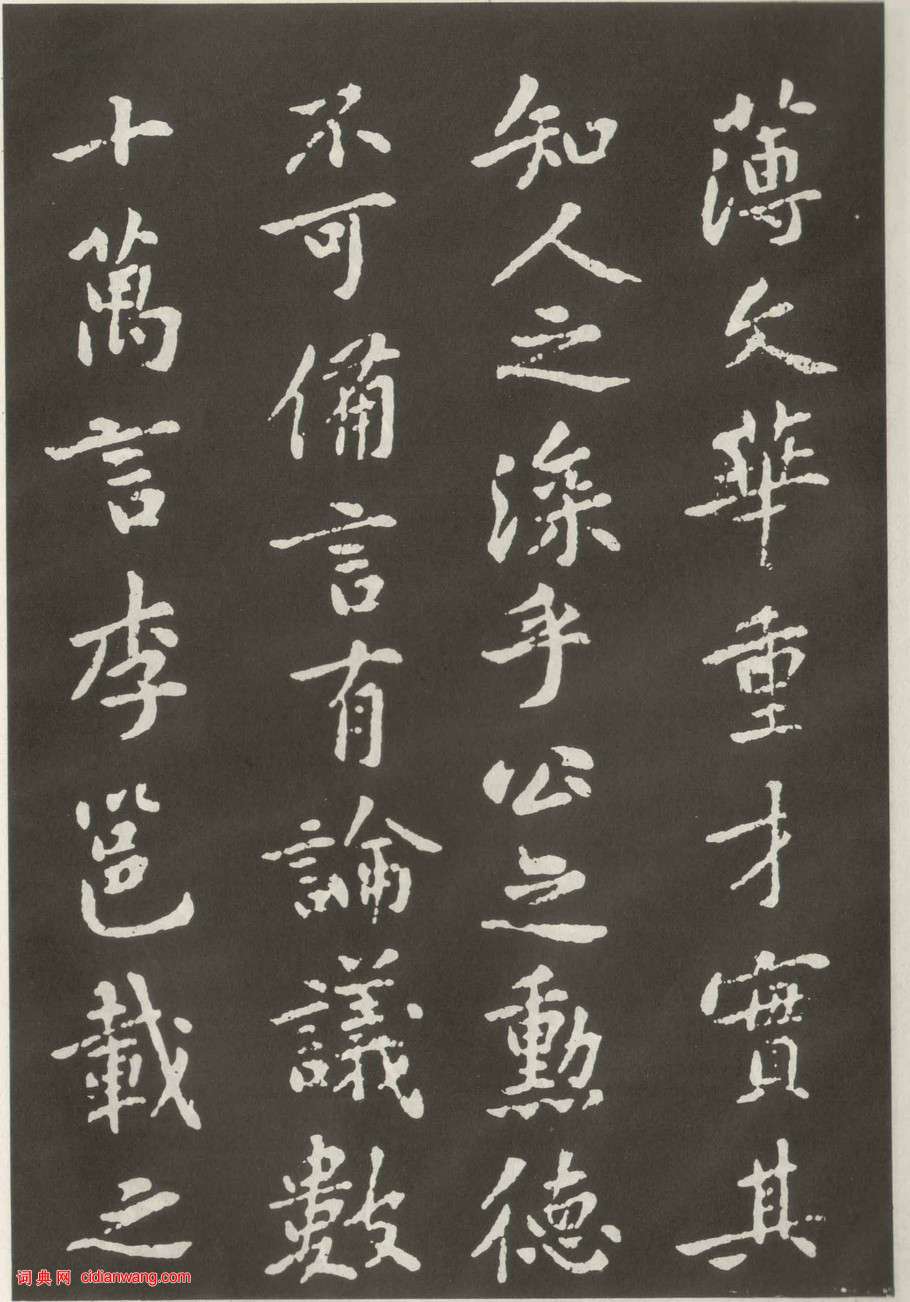 薄文華重才實其
知人之深乎公之勳德
不可備言有論議數
十萬言李邕載之
词典网 cidianwang.com